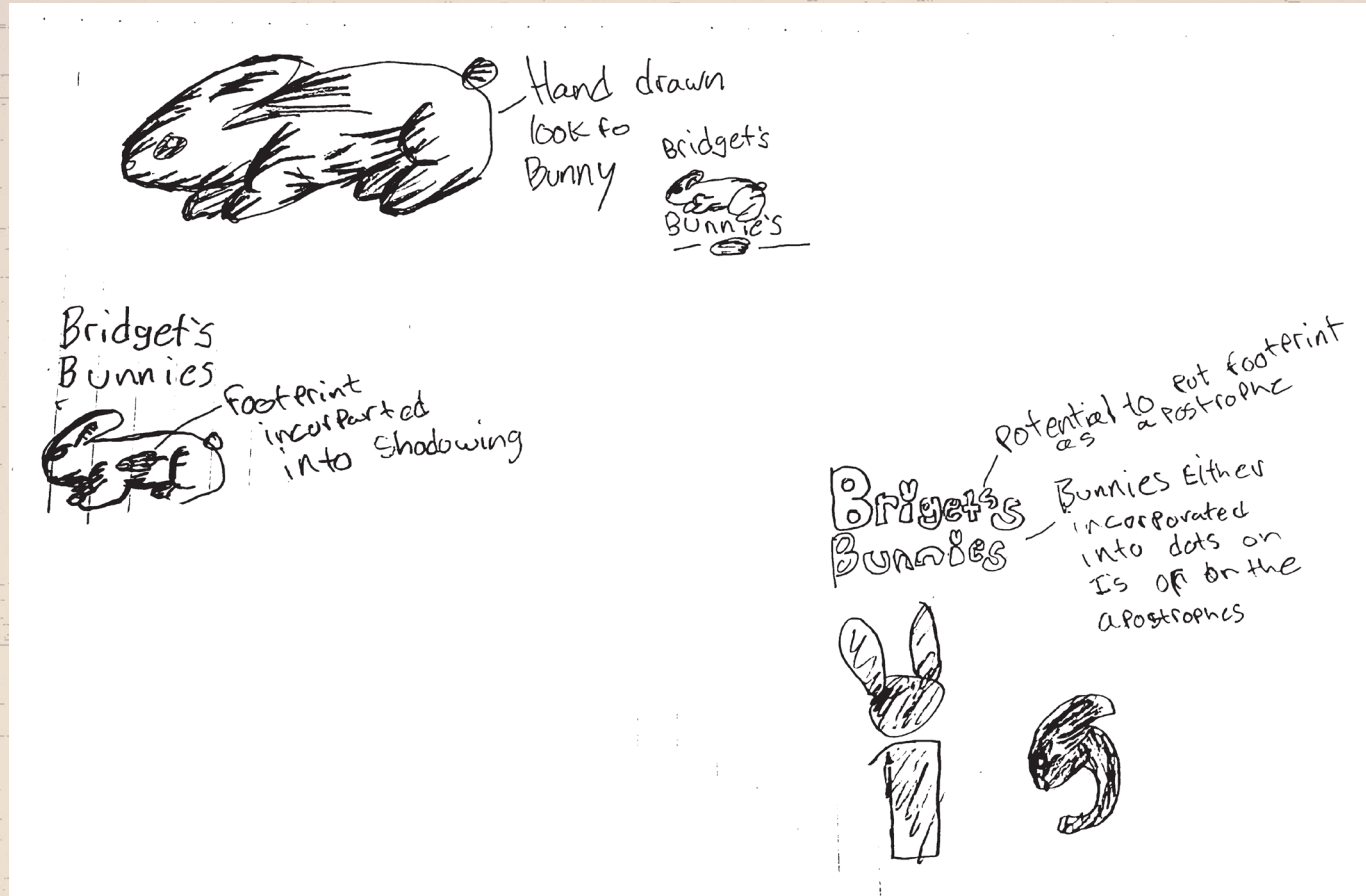 Hand drawn
look fo
Bunny
Bridget's
Bunnie's
Bridget's
Bunnies
footprint
incorparted
into Shadowing
Potential to put footprint
as apostrophe
Briget's
Bunnies
Bunnies Either
incorporated
into dots on
I's or on the
apostrophes